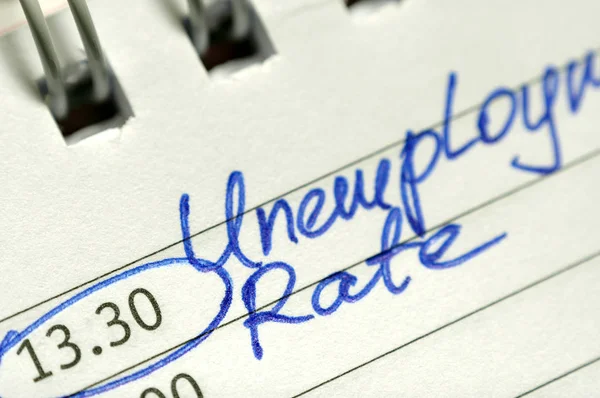 Unemploym
13.30 Rate
00